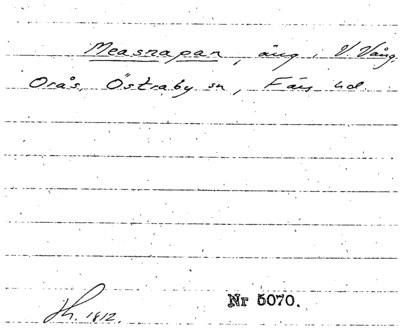 Measnapan, äng, V. Vång.
Orås, Östraby sn, Färs hd.
1812.
Nr 5070.